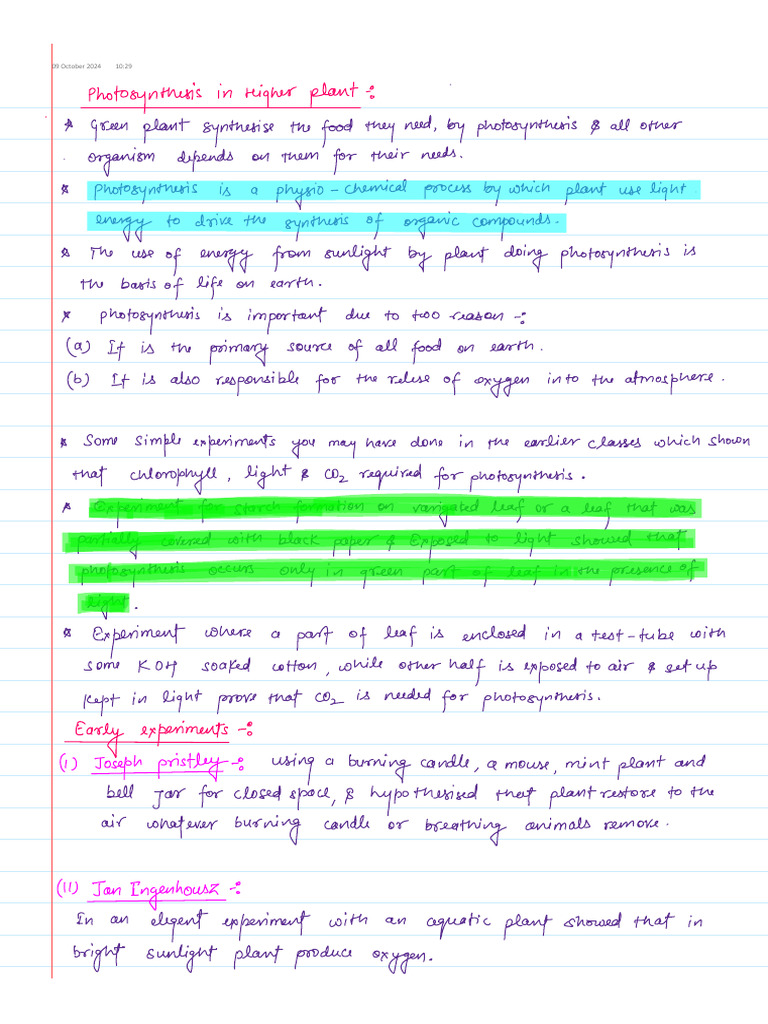 09 October 2024 10:29
Photosynthesis in Higher plant :-
* Green plant synthesise the food they need, by photosynthesis & all other
organism depends on them for their needs.
* Photosynthesis is a physio-chemical process by which plant use light
energy to drive the synthesis of organic compounds.
* The use of energy from sunlight by plant doing photosynthesis is
the basis of life on earth.
* photosynthesis is important due to two reason -:
(a) It is the primary source of all food on earth.
(b) It is also responsible for the relese of oxygen into the atmosphere.
* Some simple experiments you may have done in the earlier classes which shown
that chlorophyll, light & CO2 required for photosynthesis.
* Experiment for starch formation on varigated leaf or a leaf that was
partially covered with black paper & Exposed to light showed that
photosynthesis occurs only in green part of leaf in the presence of
light.
* Experiment where a part of leaf is enclosed in a test-tube with
some KOH soaked cotton, while other half is exposed to air & set up
kept in light prove that CO2 is needed for photosynthesis.
Early experiments -:
(I) Joseph pristley -: using a burning candle, a mouse, mint plant and
bell Jar for closed space, & hypothesised that plant restore to the
air whatever burning candle or breathing animals remove.
(II) Jan Engenhousz -:
In an elegent experiment with an aquatic plant showed that in
bright sunlight plant produce oxygen.